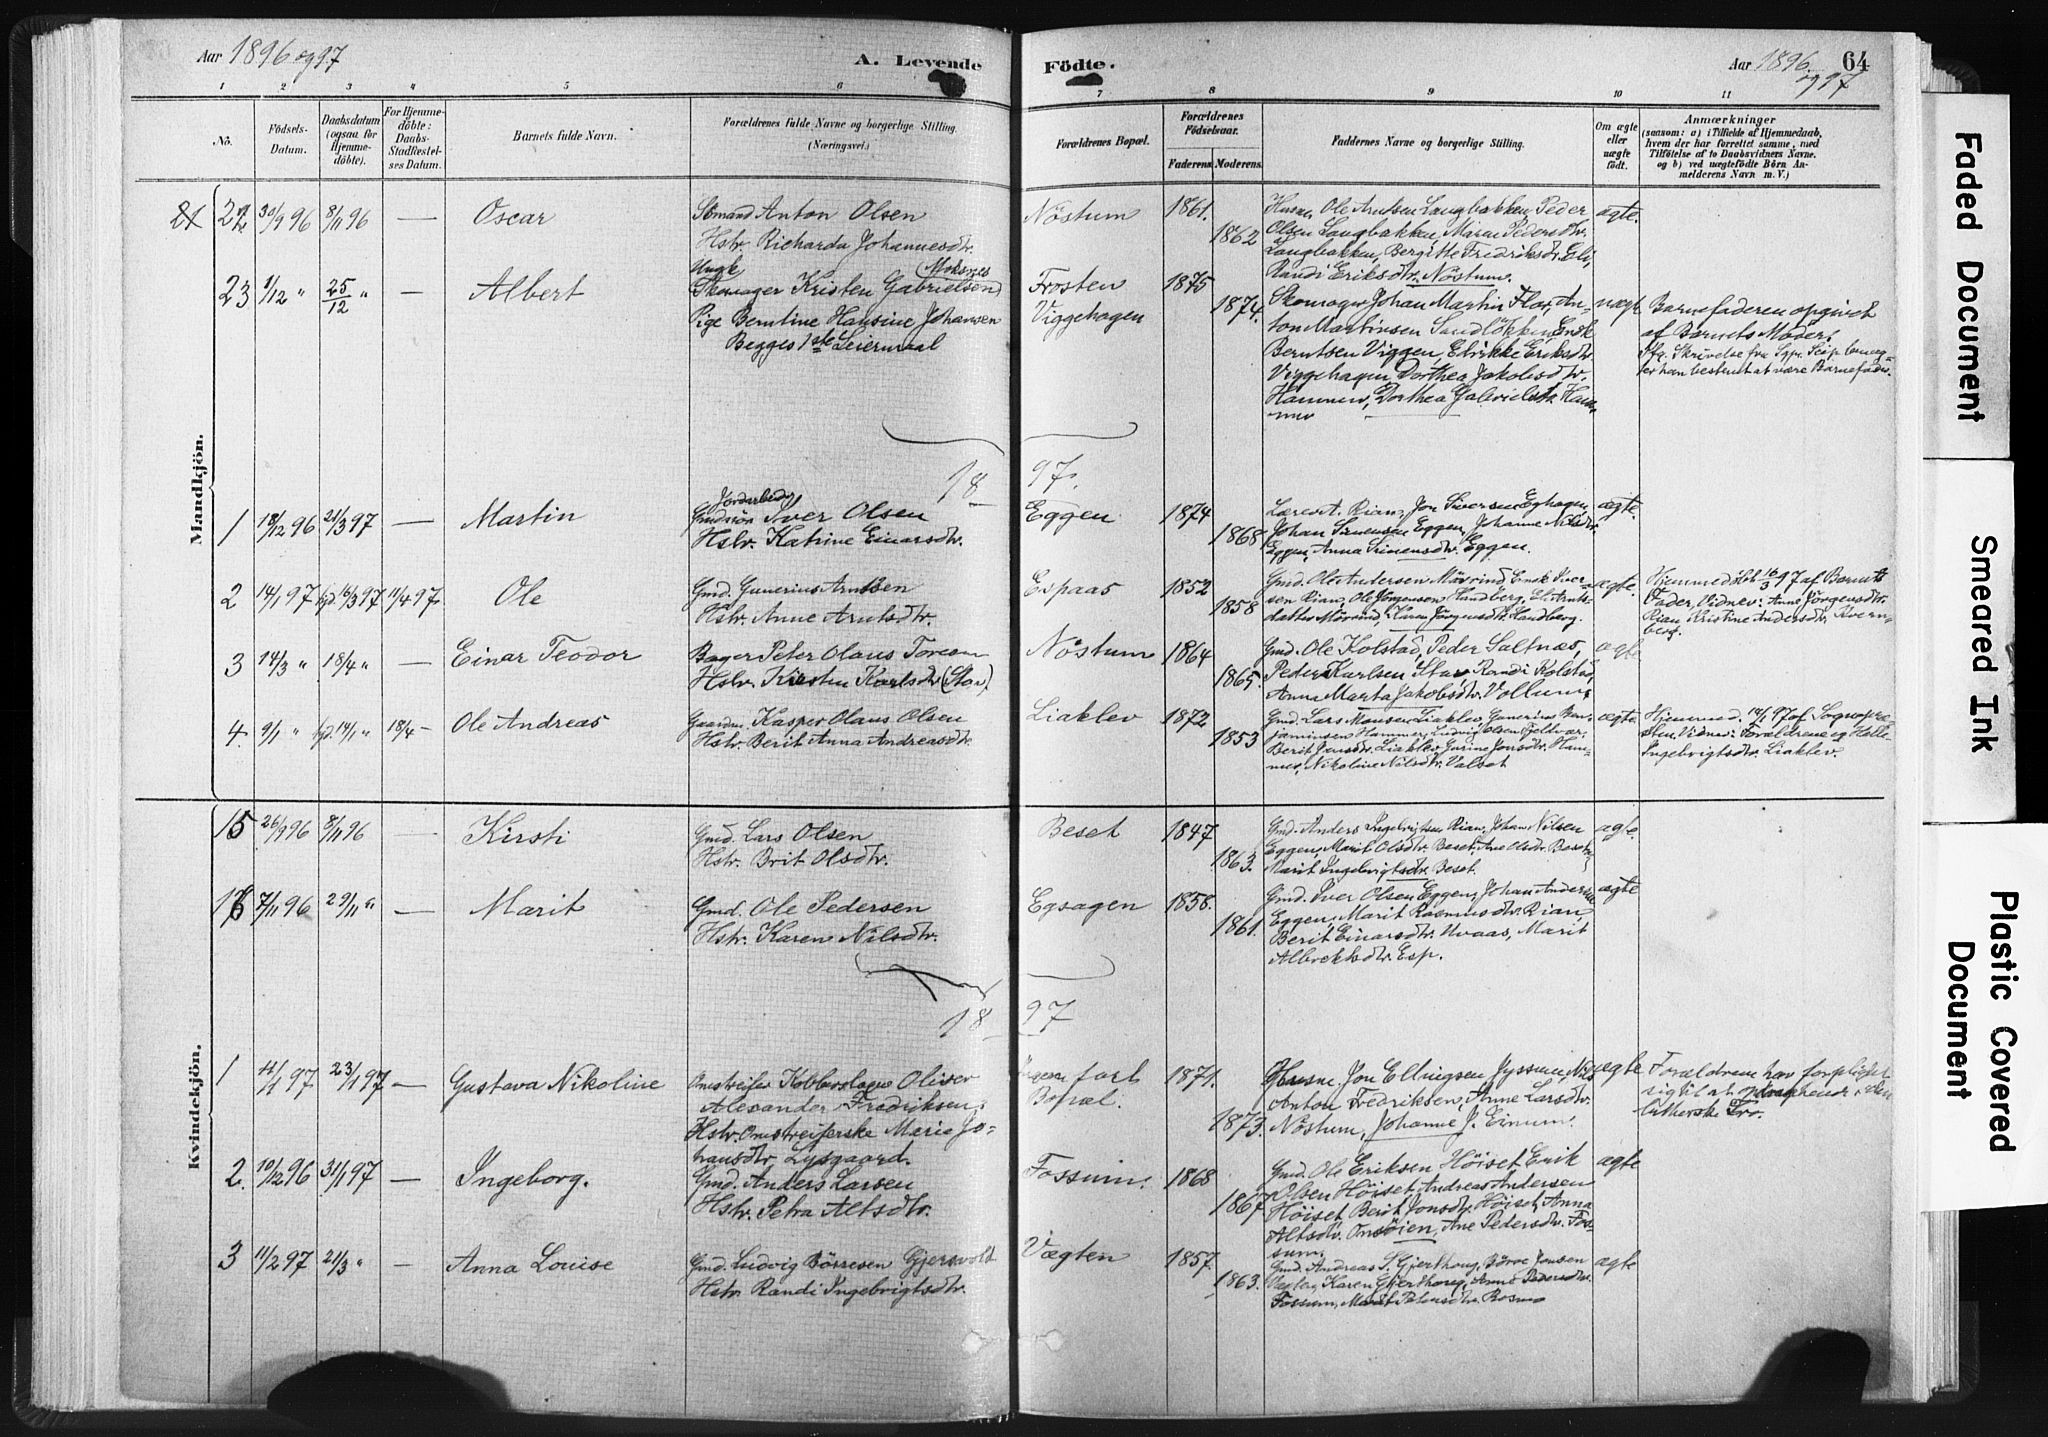 Aar 1896 og 97
A. Levende Födte.
Aar 1896 og 97
64
1 2 3 4 5 6 7 8 9 10 11
No.
Födsels-Datum.
Daabsdatum (ogsaa for Hjemme-döbte).
For Hjemme-döbte: Daabs-Stadfæstel-ses Datum.
Barnets fulde Navn.
Forældrenes fulde Navne og borgerlige Stilling. (Næringsvei.)
Forældrenes Bopæl.
Forældrenes Födselsaar.
Faderens. Moderens.
Faddernes Navne og borgerlige Stilling.
Om ægte eller uægte födt.
Anmærkninger
(saasom: a) i Tilfælde af Hjemmedaab, hvem der har forrettet samme, med Tilföielse af to Daabsvidners Navne. og b) ved uægtefödte Börn An-melderens Navn m. V.)
Mandkjön.
22 30/9 96 8/11 96 — Oscar
Sömand Anton Olsen
Hstr. Richarda Johannesdtr.
Nöstum 1861. 1862
Husm. Ole Arntsen Langbakken, Peder
Olsen Langbakken, Maren Pedersdtr.
Langbakken, Bergitte Fredriksdtr. Eli,
Randi Eriksdtr. Nöstum.
ægte.
23 1/12 " 25/12 " — Albert
Ungk. (Moksnes)
Skomager Kristen Gabrielsen
Pige Berntine Hansine Johansen
Begges 1ste Leiermaal
Frosten
Viggehagen
1875 1874.
Skomager Johan Martin Flor, An-
ton Martinsen Sandlökken, Enok
Berntsen Viggen, Elrikke Eriksdtr.
Viggehagen, Dorthea Jakobsdtr.
Hammer, Dorthea Gabrielsdtr. Ham-
mer
uægte
Barnefaderen opgivet
af Barnets Moder.
1897.
1 18/12 96 21/3 97 — Martin
Jordarbeider
Gmdsön Iver Olsen
Hstr. Katrine Einarsdtr.
Eggen 1874 1868
Lærer A. Rian, Jon Siversen Eghagen,
Johan Simensen Eggen, Johanne Nilsdtr.
Eggen, Anna Simensdtr. Eggen.
ægte.
2 14/1 97 hjd. 16/3 97 11/4 97 Ole
Gmd. Gunerius Arntsen
Hstr. Anne Arntsdtr.
Espaas 1852 1858
Gmd. Ole Andersen Mörrind, Enok Iver-
sen Rian, Ole Jörgensen Landberg, Eli Arnts-
datter Mörrind, Karen Jörgensdtr. Landberg.
ægte
Hjemmedöbt 16/3 97 af Barnets
Fader, Vidner: Anne Jörgensdtr.
Rian Kristine Andersdtr. Kvern-
berg.
3 14/3 " 18/4 " — Einar Teodor
Bager Peter Olaus Toresen
Hstr. Kirsten Karlsdtr. (Stav).
Nöstum 1864 1865.
Gmd. Ole Kolstad, Peder Saltnæs,
Peder Karlsen Stav, Randi Kolstad,
Anna Marta Jakobsdtr. Vollum.
ægte
4. 9/1 " hjd. 14/1 " 18/4 — Ole Andreas
Gaardm. Kasper Olaus Olsen
Hstr. Berit Anna Andreasdtr.
Liaklev 1872 1853
Gmd. Lars Monsen Liaklev, Gunerius Ben-
jaminsen Hammer, Ludvig Olsen Fjeldvær,
Berit Jonsdtr. Liaklev, Gurine Jonsdtr. Ham-
mer, Nikoline Nilsdtr. Valset
ægte
Hjemmed. 14/1 97 af Sognepræ-
sten. Vidner: Forældrene og
Ingebrigtsdtr. Liaklev.
Kvindekjön.
15 26/9 96 8/11 96 — Kirsti
Gmd. Lars Olsen
Hstr. Brit Olsdtr.
Beset 1847 1863.
Gmd. Anders Ingebrigtsen Rian, Johan Nilsen
Eggen, Marit Olsdtr. Beset, Ane Olsdtr. Beset,
Marit Ingebrigtsdtr. Beset
ægte.
16 7/11 96 29/11 " — Marit
Gmd. Ole Pedersen
Hstr. Karen Nilsdtr.
Egsagen 1858. 1861.
Gmd. Iver Olsen Eggen, Johan Andersen
Eggen, Marit Rasmusdtr. Rian,
Berit Einarsdtr. Uvaas, Marit
Albrektsdtr. Esp.
ægte
1897
1 4/1 97 23/1 97 — Gustava Nikoline
Omstreifer Kobberslager Oliver
Alexander Fredriksen
Hstr. Omstreiferske Marie Jo-
hansdtr. Lysgaard.
Ingen fast
Bopæl.
1871. 1873.
Husm. Jon Ellingsen Jyssum, Nils
Anton Fredriksen, Anne Larsdtr.
Nöstum, Johanne J. Einum.
ægte
Forældrene har forpligtet
sig til at opdrage hende i den
lutherske Tro.
2. 10/12 96 31/1 97 — Ingeborg.
Gmd. Anders Larsen
Hstr. Petra Altsdtr.
Fossum. 1868 1867
Gmd. Ole Eriksen Höiset, Erik
Olsen Höiset, Andreas Andersen
Höiset, Berit Jonsdtr. Höiset, Anna
Altsdtr. Omsöien, Ane Pedersdtr. Fos-
sum.
ægte
3 11/2 97 21/3 " — Anna Louise
Gmd. Ludvig Börresen Gjersvold
Hstr. Randi Ingebrigtsdtr.
Vægten 1857 1863.
Gmd. Andreas S. Gjerthaug, Börre Jonsen
Vægten, Karen Gjerthaug, Anne Pedersdtr.
Fossum, Marit Petersdtr.
ægte
Faded Document
Smeared Ink
Plastic Covered Document